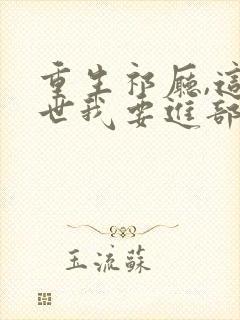 重生祁厅,這
世我要進部
玉流蘇